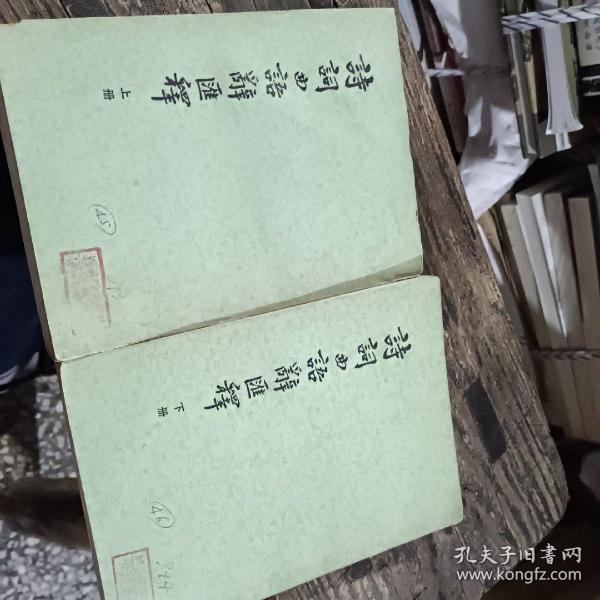 詩詞曲語辭匯釋
上册
45
詩詞曲語辭匯釋
下册
46
944
孔夫子旧書网
www.kongfz.com